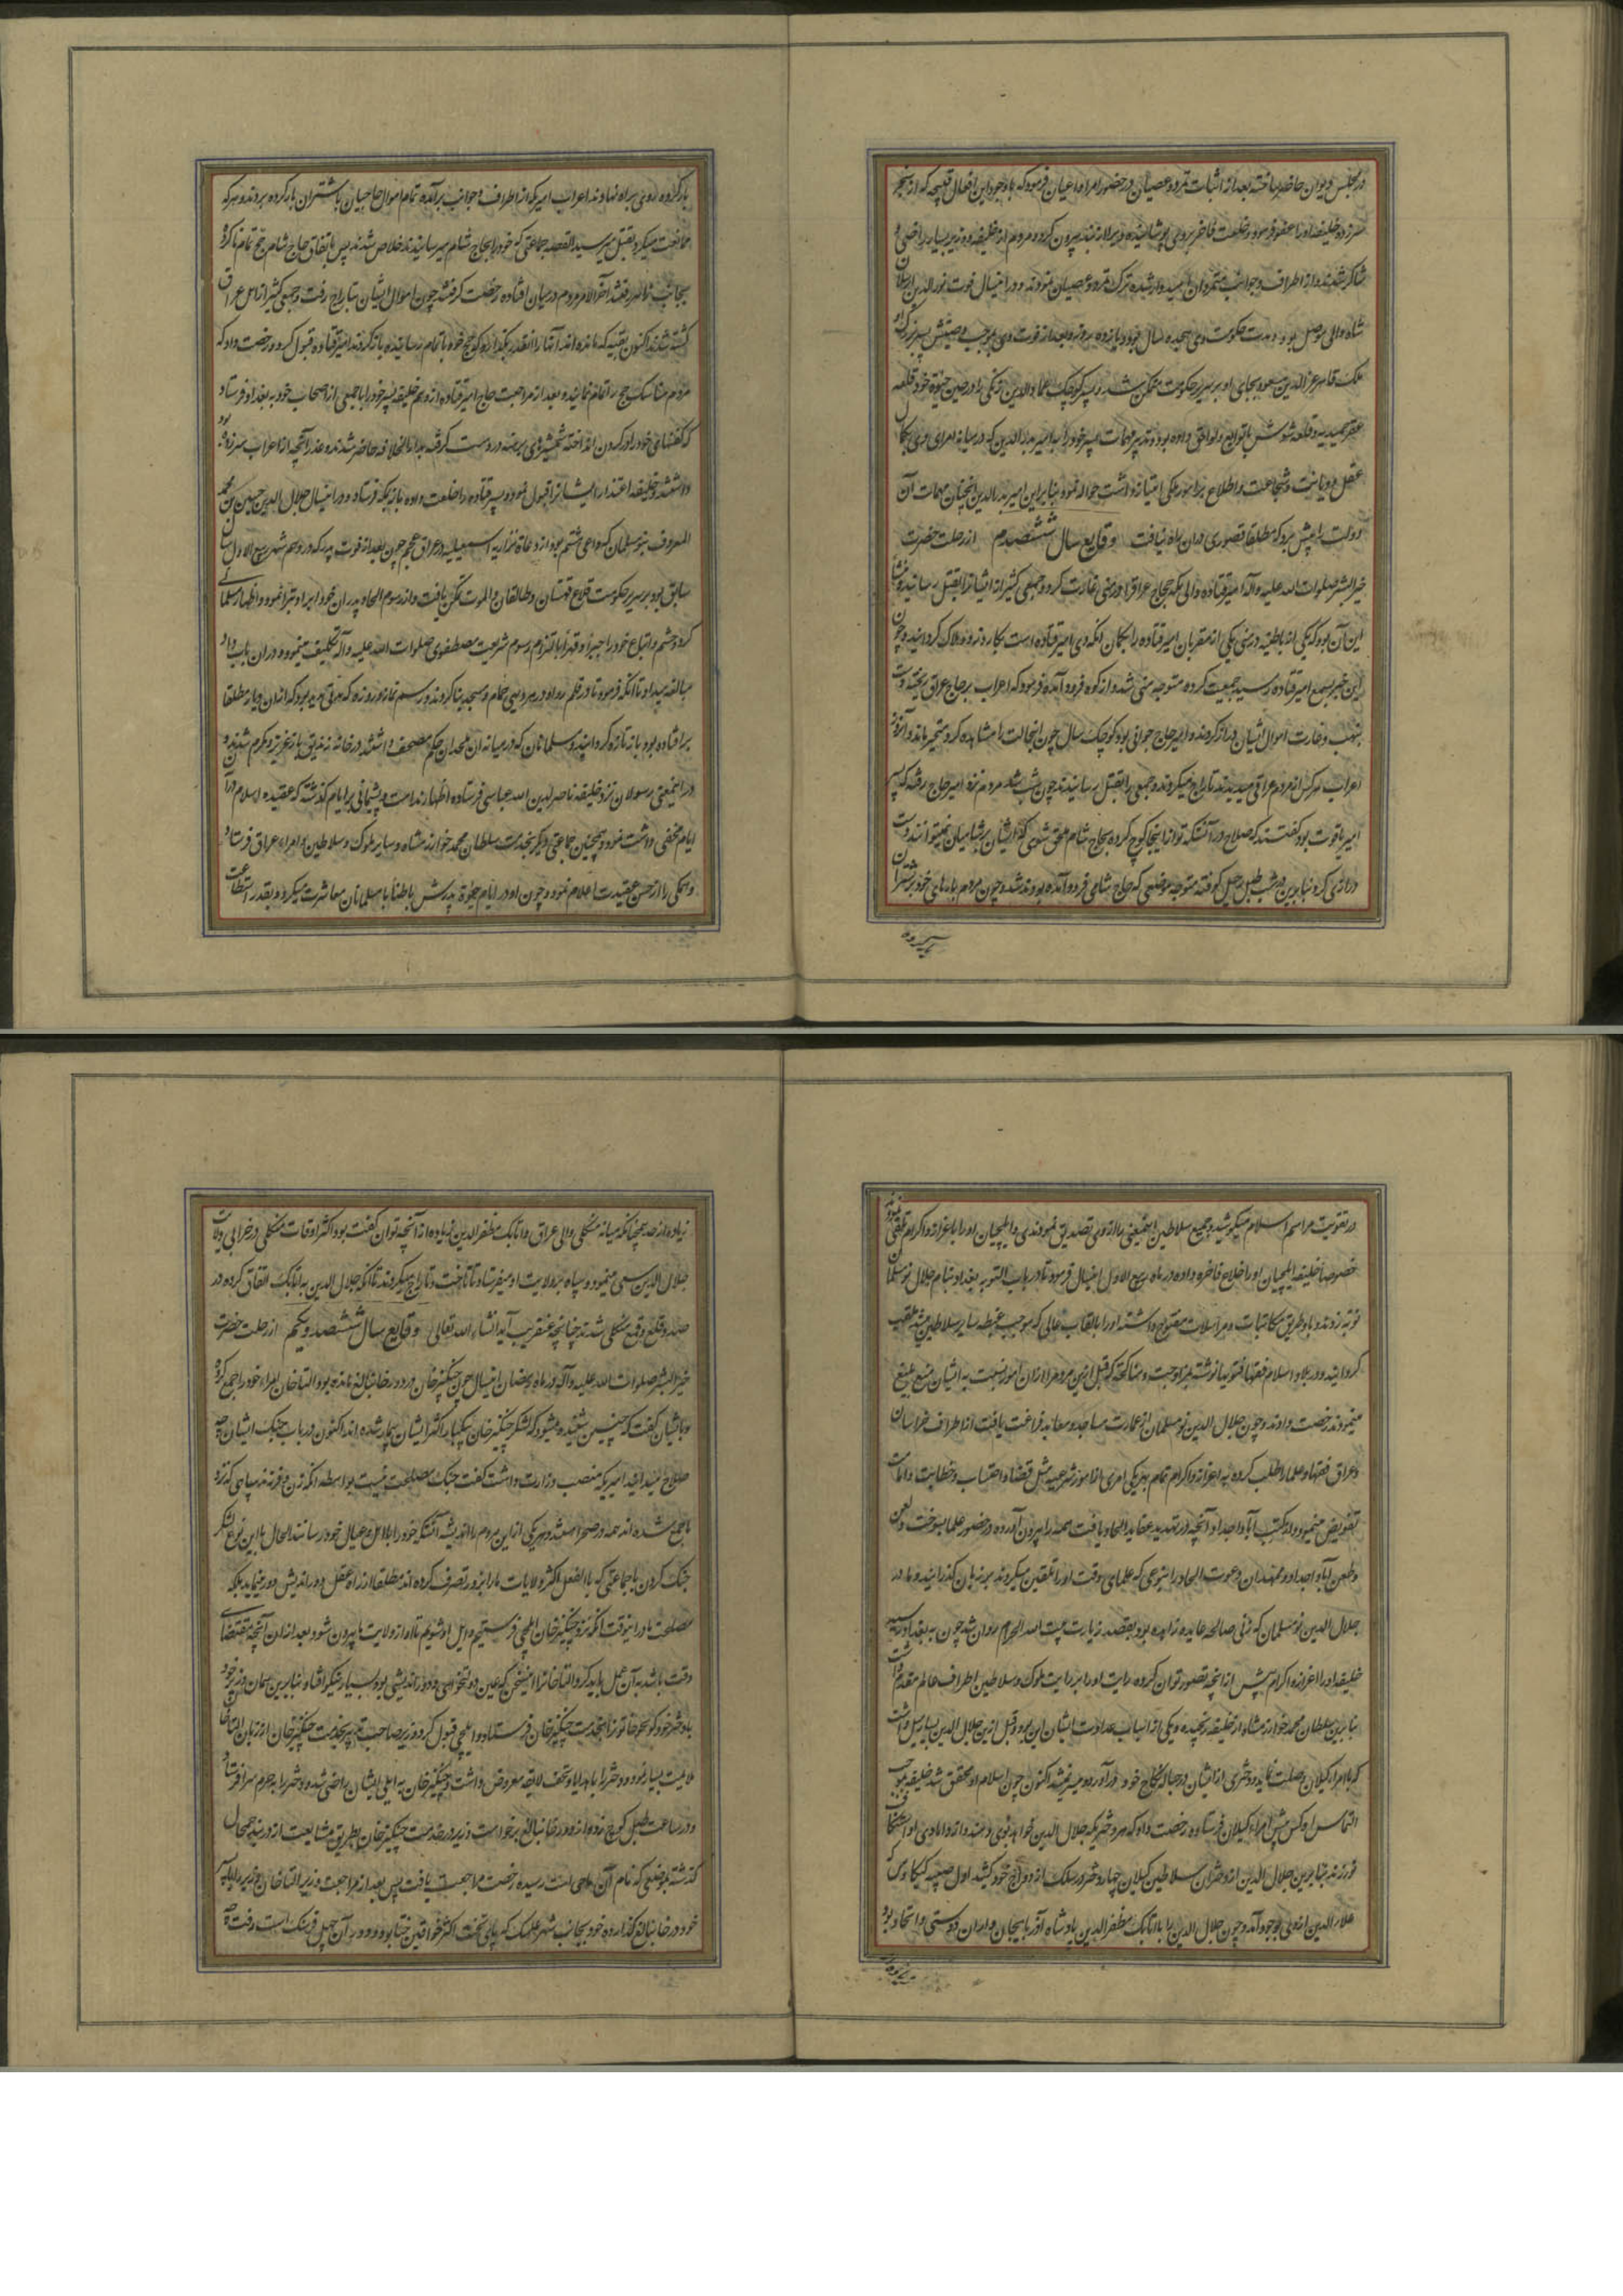 در مجلس دیوان حاضر ساخته بعد از اثبات تمرد و عصیان در حضور امرا و اعیان فرمود که با وجود این افعال قبیحه که از سنجر
سر زده خلیفه او را عفو فرمود و خلعت فاخر بروی پوشانیده و ویرا از بند بیرون کرد و مردم از خلیفه و وزیر بسیار راضی و
شاکر شدند و از اطراف و جوانب متمردان امیدوار شده ترک تمرد و عصیان نمودند و در اینسال فوت نور الدین ارسلان
شاه والی موصل بود و مدت حکومت وی هجده سال بود و یازده روز و بعد از فوت وی بموجب وصیتش پسر بزرک او
ملک قاهر عز الدین مسعود بجای او بر سریر حکومت متمکن شد و پسر کوچک عماد الدین زنکی را در حین حیوة خود قلعه
عقر حمیدیه و قلعه شوش با توابع و لواحق داده بود و تدبیر مهمات پسر خود را به امیر بدر الدین که در میانه امرای وی بکمال
عقل و دیانت و شجاعت و اطلاع بر امور ملکی امتیاز داشت حواله نمود بنابراین امیر بدر الدین انچنان مهمات آن
دولت را پیش برد که مطلقا قصوری در ان راه نیافت وقایع سال ششصدم از رحلت حضرت
خیر البشر صلوات الله علیه و آله امیر قتاده والی مکه حجاج عراق را در منی غارت کرد و جمعی کثیر از ایشانرا بقتل رسانید و منشأ
این آن بود که یکی از باطنیه در منی یکی از مقربان امیر قتاده را بکمان انکه وی امیر قتاده است بکارد زده هلاک کردانید و چون
این خبر بسمع امیر قتاده رسید جمعیت کرده متوجه منی شد و از کوه فرود آمده فرمود که اعراب بر حاج عراق ریخته دست
بنهب و غارت اموال ایشان دراز کردند و امیر حاج جوانی بود کوچک سال چون انحالت را مشاهده کرد متحیر ماند و آنروز
اعراب هر کس از مردم عراق میدیدند تاراج میکردند و جمعی را بقتل رسانیدند چون شب شد مردم نزد امیر حاج رفته که پسر
امیر یاقوت بود کفتند که صلاح در آنستکه تو از اینجا کوچ کرده بحجاج شام ملحق شوی که ایشان بر شامیان نمیتوانند دست
درازی کرد بنابرین در شب طبل رحیل کوفته متوجه موضعی که حاج شامی فرود آمده بودند شد و چون مردم بارهای خود بر شتران
بار کرده روی براه نهادند اعراب امیر مکه از اطراف و جوانب برآمده تمام اموال حاجیان با شتران بار کرده بردند و هر که
ممانعت میکرد بقتل میرسید القصه جماعتی که خود را بحاج شام میرسانیدند خلاص شدند پس باتفاق حاج شام حج تمام ناکرده
بجانب زاهر رفتند آخر الامر مردم در میان افتاده رخصت کرفتند چون اموال ایشان بتاراج رفت و جمعی کثیر از اهل عراق
کشته شدند اکنون بقیه که مانده اند آنها را انقدر بکذارید که حج خود باتمام رسانیده باز کردند امیر قتاده قبول کرد و رخصت داد که
مردم مناسک حج را تمام نمایند و بعد از مراجعت حاج امیر قتاده از وهم خلیفه پسر خود را با جمعی از اصحاب خود به بغداد فرستاد
که کفنهای خود را در کردن انداخته شمشیرهای برهنه در دست کرفته بدار الخلافه حاضر شدند و عذر آنچه از اعراب سرزده بود
خواستند و خلیفه اعتذار ایشانرا قبول نمود و پسر قتاده را خلعت داده باز بمکه فرستاد و در اینسال جلال الدین حسن بن محمد
المعروف بنو مسلمان که داعی ششم بود از دعاة نزاریه اسمعیلیه در عراق عجم چون بعد از فوت پدر که در دهم شهر ربیع الاول سال
سابق بود بر سریر حکومت قلاع قهستان و طالقان و الموت تمکن یافت و از رسوم الحاد پدران خود ابرا و تبرا نموده و اظهار مسلمانی
کرد و حشم و اتباع خود را جبرا و قهرا بالتزام رسوم شریعت مصطفوی صلوات الله علیه و آله تکلیف مینمود و در ان باب داد
مبالغه میداد تا آنکه فرمود تا در قلمرو او در هر دیهی حمام و مسجد بنا کردند و رسم نماز و روزه که مدتی مدید بود که از ان دیار مطلقا
بر افتاده بود باز تازه کردانیدند و مسلمانان که در میانه ان ملحدان حکم مصحف داشتند در خانه زندیق باز عزیز و مکرم شدند و
در اینمعنی رسولان نزد خلیفه ناصر لدین الله عباسی فرستاده اظهار ندامت و پشیمانی بر ایام کذشته که عقیده اسلام در آن
ایام مخفی داشت نمود و همچنین جماعتی دیکر بخدمت سلطان محمد خوارزمشاه و سایر ملوک و سلاطین و امراء عراق فرستاد
و همکی را از حسن عقیدت اعلام نمود و چون او در ایام حیوة پدرش باطنا با مسلمانان معاشرت میکرد و بقدر استطاعت
در تقویت مراسم اسلام میکوشید و جمیع سلاطین اینمعنی را از وی تصدیق نمودند و ایلچیان او را با عزاز و اکرام تلقی نمودند
خصوصا خلیفه ایلچیان او را خلاع فاخره داده در ماه ربیع الاول اینسال فرمود تا در باب النوبه بغداد بنام جلال نو مسلمان
نوبه زدند و با و طریق مکاتبات و مراسلات مفتوح داشته او را بالقاب عالی که موجب غبطه سایر سلاطین میشد ملقب
کردانید و در بلاد اسلام فقها فتویها نوشته بمزاوجت و مناکحت که قبل ازین مردم را از ان امور نسبت به ایشان منع بلیغ
مینمودند رخصت دادند و چون جلال الدین نو مسلمان از عمارت مساجد و معابد فراغت یافت از اطراف خراسان
و عراق فقها و علما را طلب کرده به اعزاز و اکرام تمام بهر یکی امری از امور شرعیه مثل قضا و احتساب و خطابت و امامت
تفویض مینمود و از کتب آبا و اجداد و آنچه در تمهید عقاید الحاد یافت همه را بیرون آورده در حضور علما بسوخت و لعن
و طعن آبا و اجداد و ممهدان دعوت الحاد را بنوعی که علمای وقت او را تلقین میکردند بر زبان کذرانید و مادر
جلال الدین نو مسلمان که زنی صالحه عابده زاهده بود بقصد زیارت بیت الله الحرام روان شد چون به بغداد رسید
خلیفه او را اعزاز و اکرام بیش از انچه تصور توان کرد کرده رایت او را بر رایت ملوک و سلاطین اطراف عالم مقدم داشت
بنابرین سلطان محمد خوارزمشاه از خلیفه رنجیده و یکی از اسباب عداوت ایشان این بود و قبل ازین جلال الدین بسیار میل داشت
که با امراء کیلان وصلت نماید و دختری از ایشان در حباله نکاح خود در آورد و میسر نمیشد اکنون چون اسلام او محقق شد خلیفه بموجب
التماس او کس پیش امراء کیلان فرستاده رخصت داد که هر دختریکه جلال الدین خواهد بوی دهند و از دامادی او استنکاف
نورزند بنابرین جلال الدین از دختران سلاطین کیلان چهار دختر در سلک ازدواج خود کشید اول صبیه کیکاوس که
علاء الدین ازوی بوجود آمد و چون جلال الدین را با اتابک مظفر الدین پادشاه آذربایجان و اران دوستی و اتحاد بود
زیاده از حد همچنانکه میانه منکلی والی عراق و اتابک مظفر الدین زیاده از آنچه توان کفت بود اکثر اوقات منکلی در خرابی ولایت
جلال الدین سعی مینمود و سپاه بر ولایت او میفرستاد تا تاخت و تاراج میکردند تا آنکه جلال الدین به اتابک اتفاق کرده در
صدد قلع و قمع منکلی شدند چنانچه عنقریب آید انشاء الله تعالی وقایع سال ششصد و یکم از رحلت حضرت
خیر البشر صلوات الله علیه و آله در ماه رمضان اینسال چون چنکیز خان در دور خانبالغ مانده بود التاخان امراء خود را جمع کرده
با ایشان کفت که چنین شنیده میشود که لشکر چنکیز خان بیکبار اکثر ایشان بیمار شده اند اکنون در باب جنک ایشان چه
صلاح میدانید امیریکه منصب وزارت داشت کفت جنک مصلحت نیست بواسطه انکه زن و فرزند سپاهی که نزد
ما جمع شده اند همه در صحرا هستند و هر یکی از این مردم را اندیشه آنستکه خود را با اهل و عیال خود رسانند الحال با این نوع لشکر
جنک کردن با جماعتی که بالفعل اکثر ولایات ما را بزور تصرف کرده اند مطلقا از راه عقل دور اندیش دور مینماید بلکه
مصلحت ما در اینوقت انکه نزد چنکیز خان ایلچی فرستیم و ایل او شویم تا او از ولایت ما بیرون شود و بعد از ان آنچه مقتضای
وقت باشد به آن عمل باید کرد التاخانرا این سخن که عین دولتخواهی و دور اندیشی بود بسیار نیکو افتاد و بنابرین همان وزیر خود را
با دختر خود کونجو خاتونرا بخدمت چنکیز خان فرستاد و ایلچی قبول کرد و وزیر صاحب تدبیر بخدمت چنکیز خان از زبان التاخان
ملایمت بسیار نمود و دختر را با هدایا و تحف لایقه معروض داشت و چنکیز خان به ایلی ایشان راضی شده دختر را به حرم سرا فرستاد
و در ساعت طبل کوچ زده از دور خانبالغ برخواست و زیر در خدمت چنکیز خان بطریق مشایعت از دربند جمجال
کذشته بموضعی که نام آن ماجی است رسیده رخصت مراجعت یافت پس بعد از مراجعت وزیر التاخان
خود در خانبالغ کذارده خود بجانب شهر نمکنک که پای تخت اکثر خواقین ختا بود و دور آن چهل فرسنک است رفت